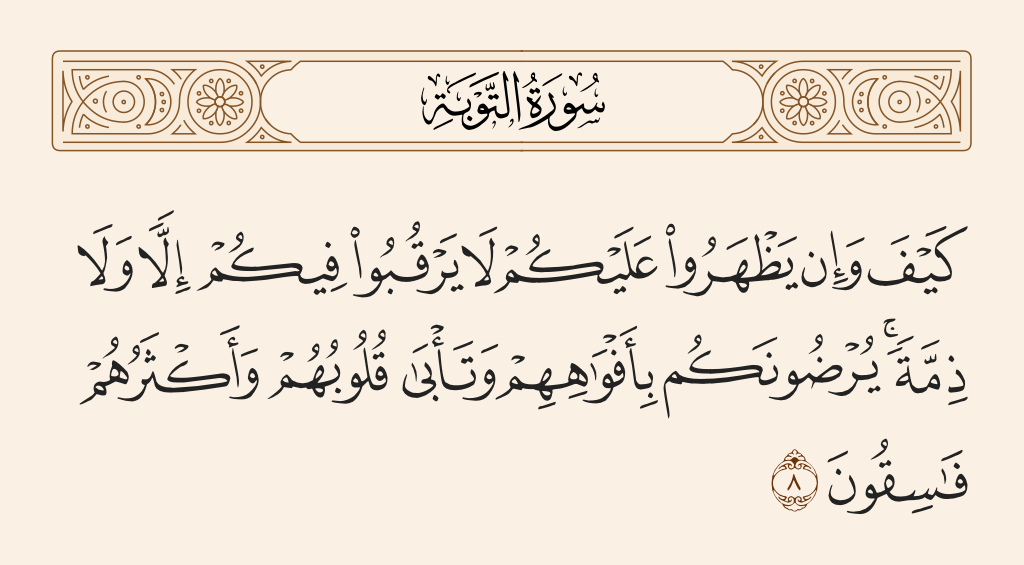 سُورَةُ التَّوْبَةِ
كَيْفَ وَإِن يَظْهَرُوا۟ عَلَيْكُمْ لَا يَرْقُبُوا۟ فِيكُمْ إِلًّا وَلَا
ذِمَّةً ۚ يُرْضُونَكُم بِأَفْوَٰهِهِمْ وَتَأْبَىٰ قُلُوبُهُمْ وَأَكْثَرُهُمْ
فَـٰسِقُونَ ٨